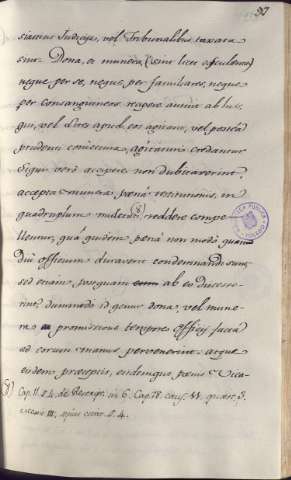 90
siasticis Judicijs, vel Tribunalibus taxata
sint. Dona, et munera (sint licet esculenta)
neque per se, neque per familiares, neque
per consanguineos recipere audeant ab his,
qui, vel lites apud eos agitant, vel postea
prudenti coniectura, agitaturi credantur
Siqui vero accipere non dubitaverint,
accepta munera poena restitutionis, in
quadruplum mulctati (8) reddere compe
llentur, qua quidem poena non modo quam
diu officium duraverit condemnandi sunt,
sed etiam, postquam ab eo discesse-
rint, dummodo id genus dona, vel mune-
ra promissione tempore officij facta
ad eorum manus pervenerint: atque
eisdem praeceptis, eisdemque poenis Vica-
(8) Cap. 11. §. 4. de Rescript. in 6. Cap. 78. caus. 11. quaest. 3.